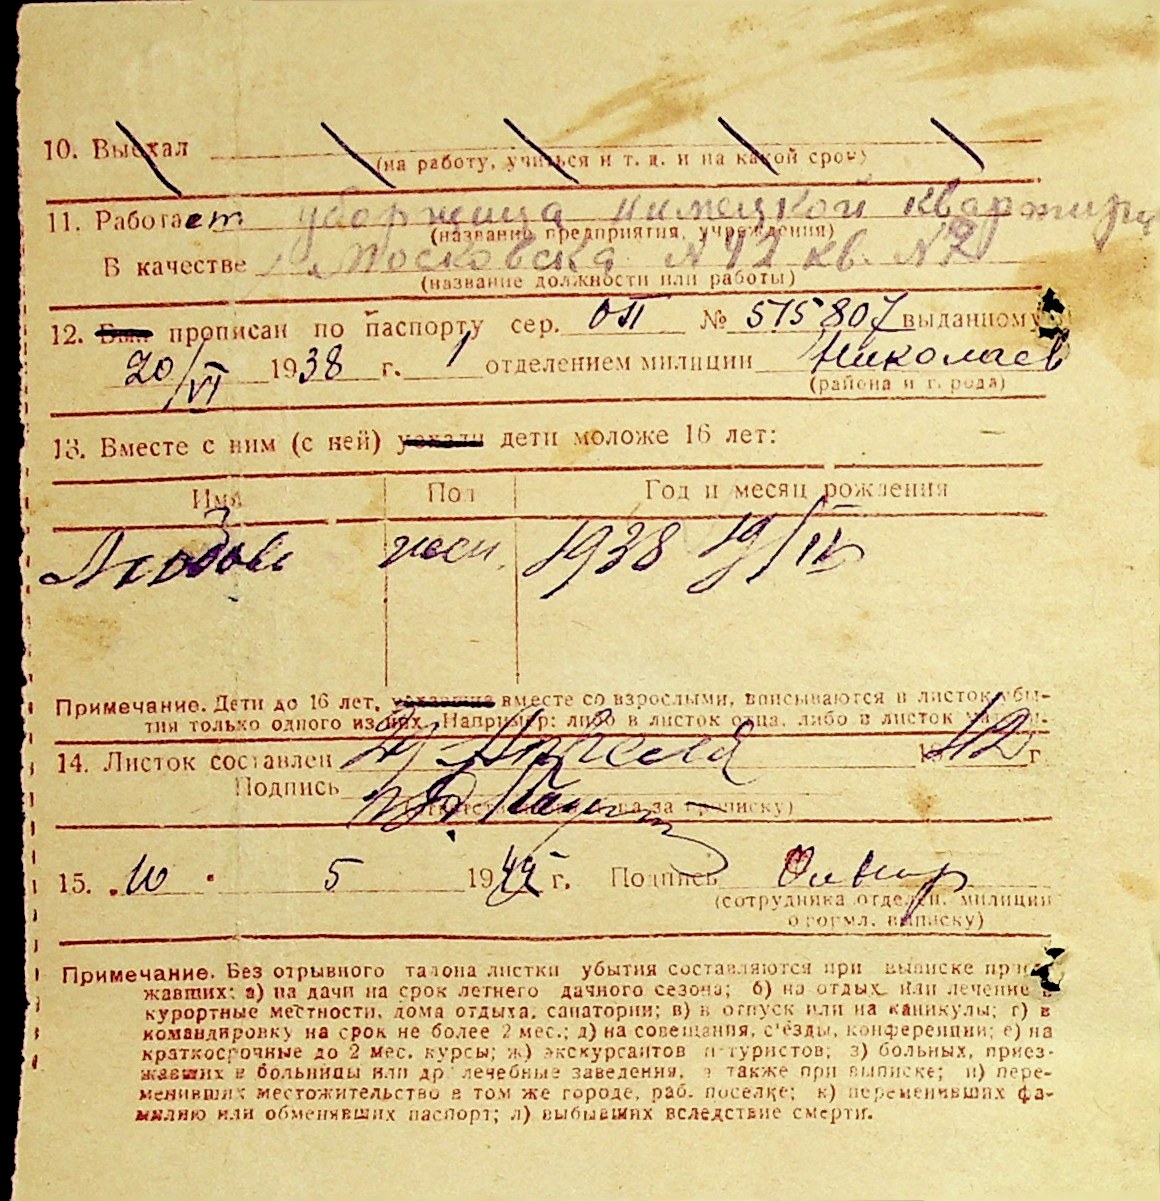 10. Выехал
(на работу, учиться и т. д. и на какой срок)
11. Работает уборжица нимецкой квартири
(название предприятия, учреждения)
В качестве Московска N 42 кв. N 2
(название должности или работы)
12. Был прописан по паспорту сер. ОП № 575807 выданному
20/VI 1938 г. 1 отделением милиции Николаев
(района и города)
13. Вместе с ним (с ней) уехали дети моложе 16 лет:
Имя Пол Год и месяц рождения
Любовь жен. 1938 19/IV
Примечание. Дети до 16 лет, уехавшие вместе со взрослыми, вписываются в листок убы-
тия только одного из них. Например: либо в листок отца, либо в листок
14. Листок составлен 29 Апреля 1942 г
Подпись
за прописку)
15. 10. 5 1942 г. Подпись
(сотрудника отделен. милиции
оформл. выписку)
Примечание. Без отрывного талона листки убытия составляются при выписке приез-
жавших: а) на дачи на срок летнего дачного сезона; б) на отдых или лечение в
курортные местности, дома отдыха, санатории; в) в отпуск или на каникулы; г) в
командировку на срок не более 2 мес.; д) на совещания, с'езды, конференции; е) на
краткосрочные до 2 мес. курсы; ж) экскурсантов и туристов; з) больных, приез-
жавших в больницы или др. лечебные заведения, а также при выписке; и) пере-
менивших местожительство в том же городе, раб. поселке; к) переменивших фа-
милию или обменявших паспорт; л) выбывших вследствие смерти.